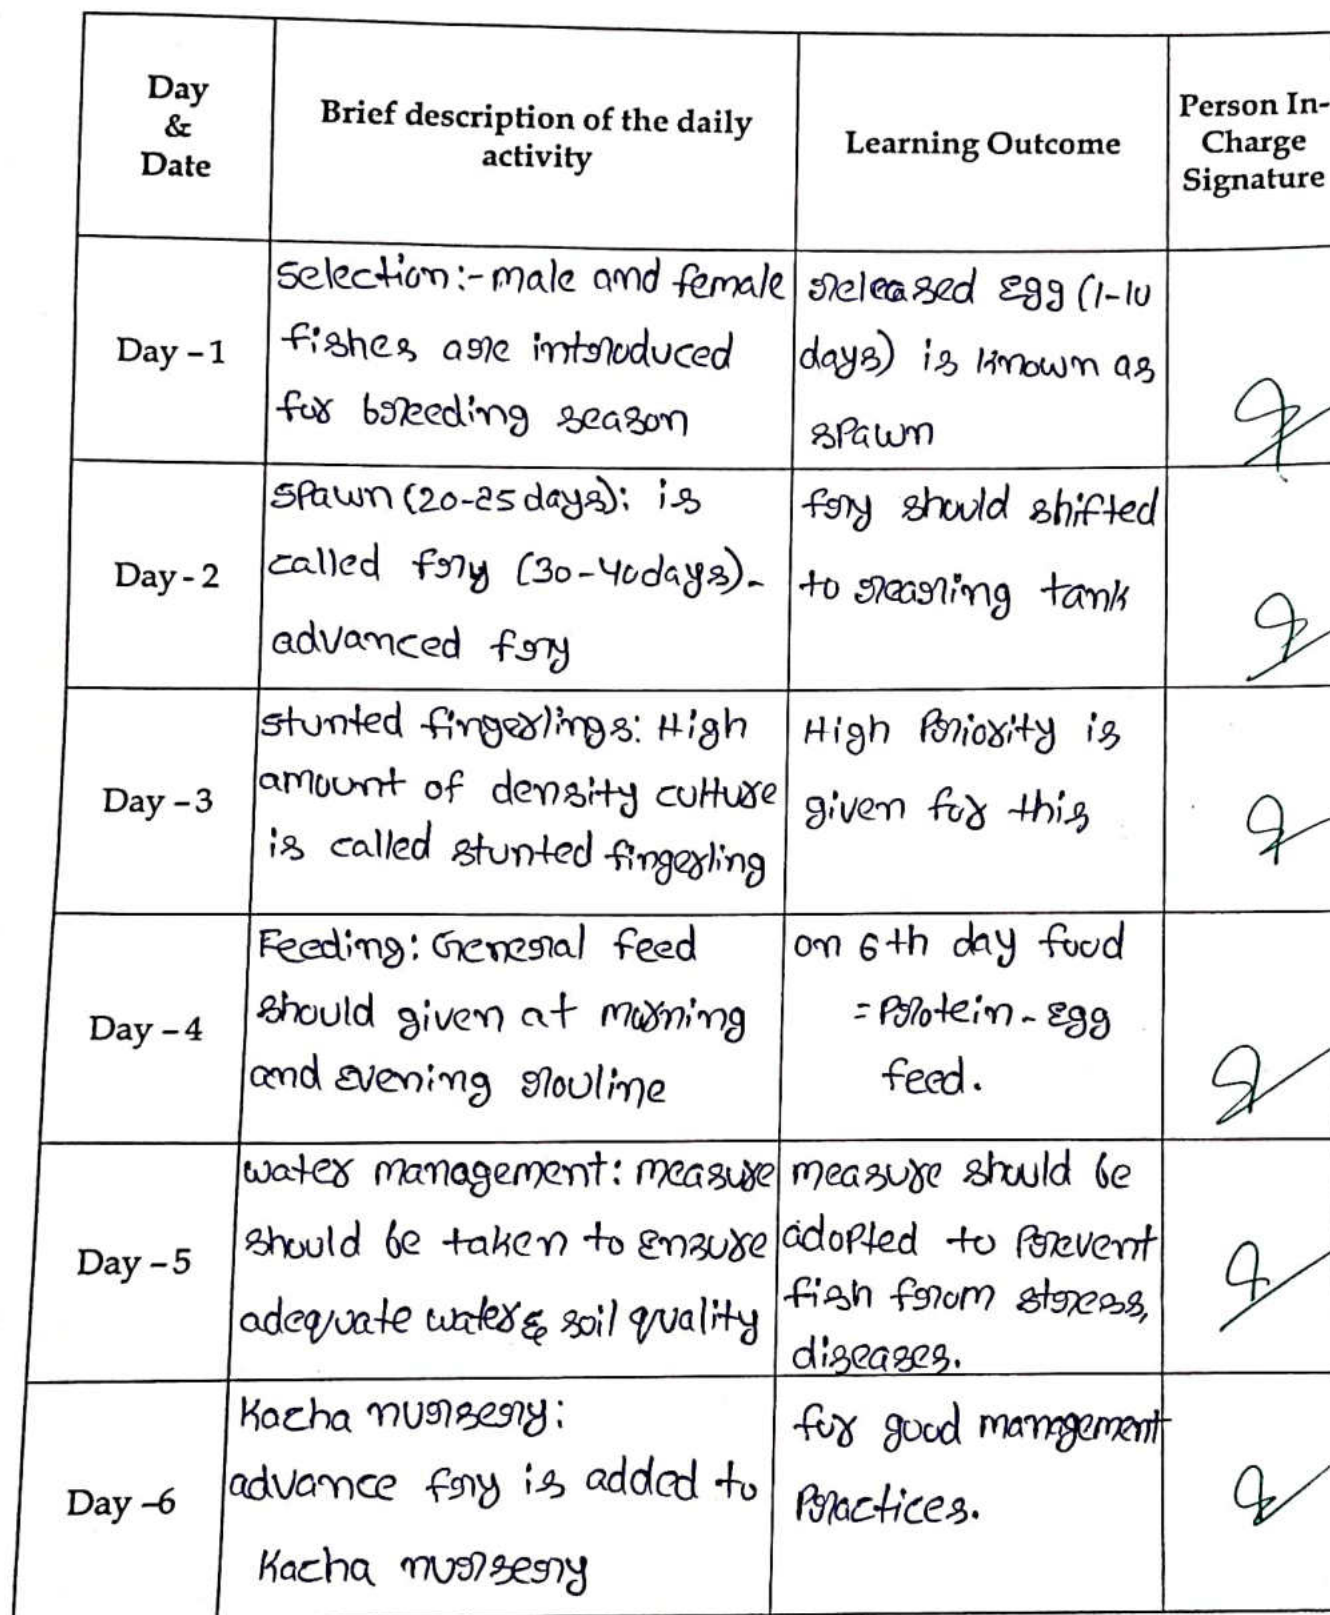 Day
&
Date
Brief description of the daily
activity
Learning Outcome
Person In-
Charge
Signature
Day - 1
selection:- male and female
fishes are introduced
for breeding season
released Egg (1-10
days) is known as
spawn
Day - 2
spawn (20-25 days): is
called fry (30-40days)-
advanced fry
fry should shifted
to rearing tank
Day - 3
stunted fingerlings: High
amount of density culture
is called stunted fingerling
High Priority is
given for this
Day - 4
Feeding: General feed
should given at morning
and evening rouline
on 6th day food
= Protein - Egg
feed.
Day - 5
water management: measure
should be taken to ensure
adequate water & soil quality
measure should be
adopted to Prevent
fish from stress,
diseases.
Day -6
Kacha nursery:
advance fry is added to
Kacha nursery
for good mamgement
Practices.